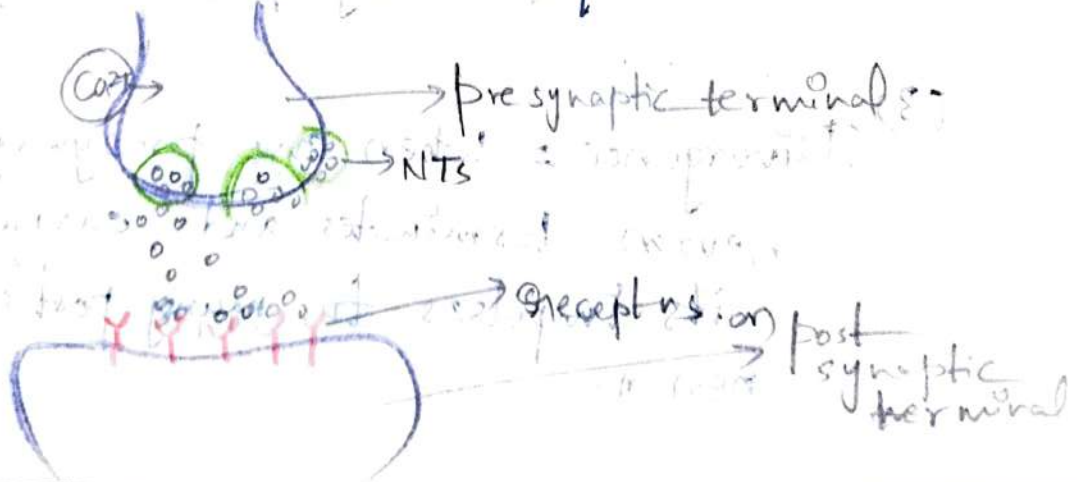 Ca²⁺
presynaptic terminals
NTs
receptors on post
synaptic
terminal